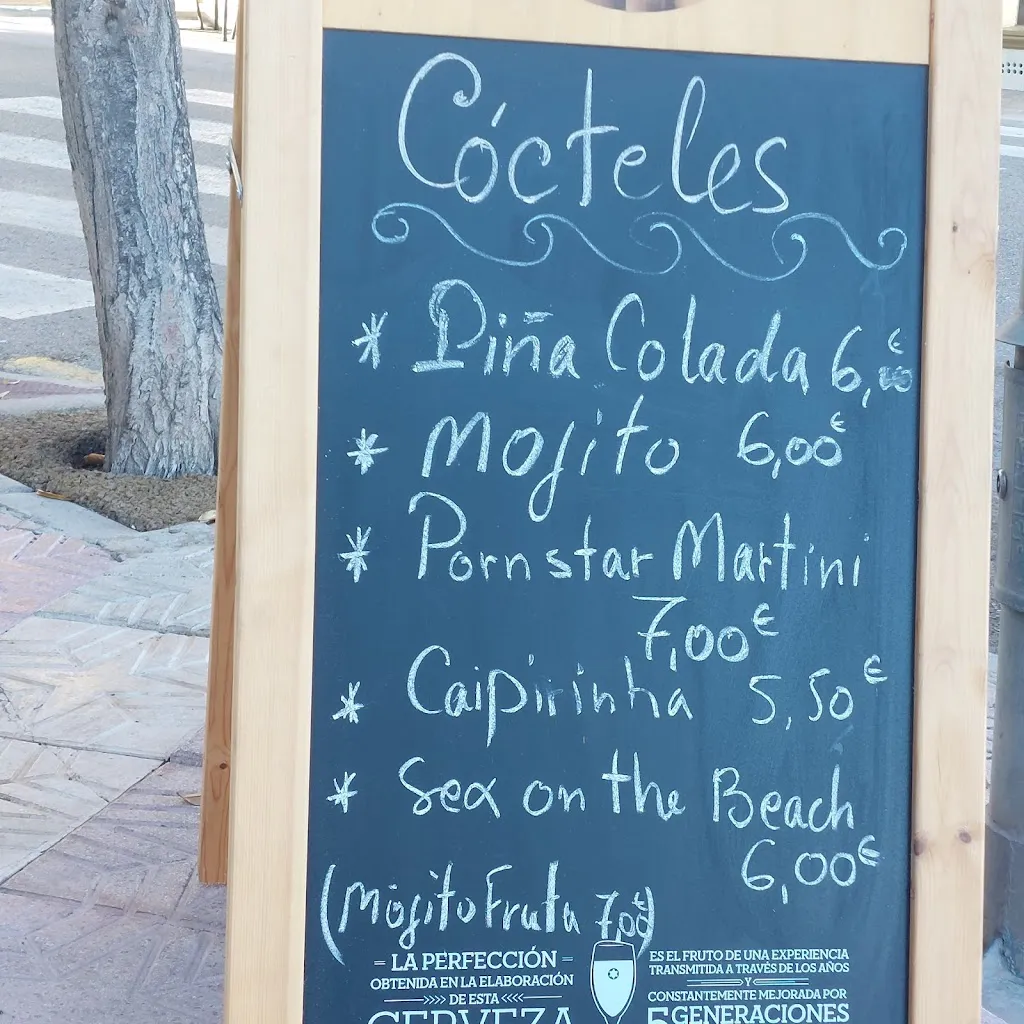 Cócteles
* Piña Colada 6,00€
* Mojito 6,00€
* Pornstar Martini
7,00€
* Caipirinha 5,50€
* Sex on the Beach
6,00€
(Mojito Fruta 7,00€)
LA PERFECCIÓN
OBTENIDA EN LA ELABORACIÓN
DE ESTA
CERVEZA
ES EL FRUTO DE UNA EXPERIENCIA
TRANSMITIDA A TRAVÉS DE LOS AÑOS
Y
CONSTANTEMENTE MEJORADA POR
5 GENERACIONES